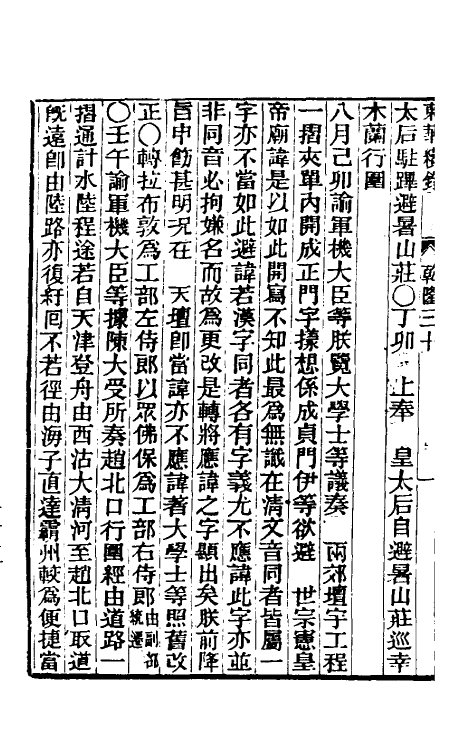 東華續錄 乾隆三十
太后駐蹕避暑山莊〇丁卯 上奉 皇太后自避暑山莊巡幸
木蘭行圍
八月己卯諭軍機大臣等朕覽大學士等議奏 兩郊壇宇工程
一摺夾單內開成正門字樣想係成貞門伊等欲避 世宗憲皇
帝廟諱是以如此開寫不知此最為無識在清文音同者皆屬一
字亦不當如此避諱若漢字同者各有字義尤不應諱此字亦並
非同音必拘嫌名而故為更改是轉將應諱之字顯出矣朕前降
旨申飭甚明況在 天壇卽當諱亦不應諱著大學士等照舊改
正〇轉拉布敦為工部左侍郎以眾佛保為工部右侍郎由副都統遷
〇壬午諭軍機大臣等據陳大受所奏趙北口行圍經由道路一
摺通計水陸程途若自天津登舟由西沽大清河至趙北口取道
旣遠卽由陸路亦復紆回不若徑由海子直達霸州較為便捷當